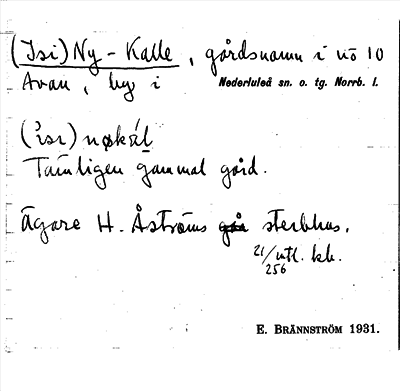 (Isi) Ny-Kalle, gårdsnamn i nö 10
Avan, by i Nederluleå sn. o. tg. Norrb. l.
Tämligen gammal gård.
Ägare H. Åströms sterbhus.
21/256 mtl. kb.
E. BRÄNNSTRÖM 1931.